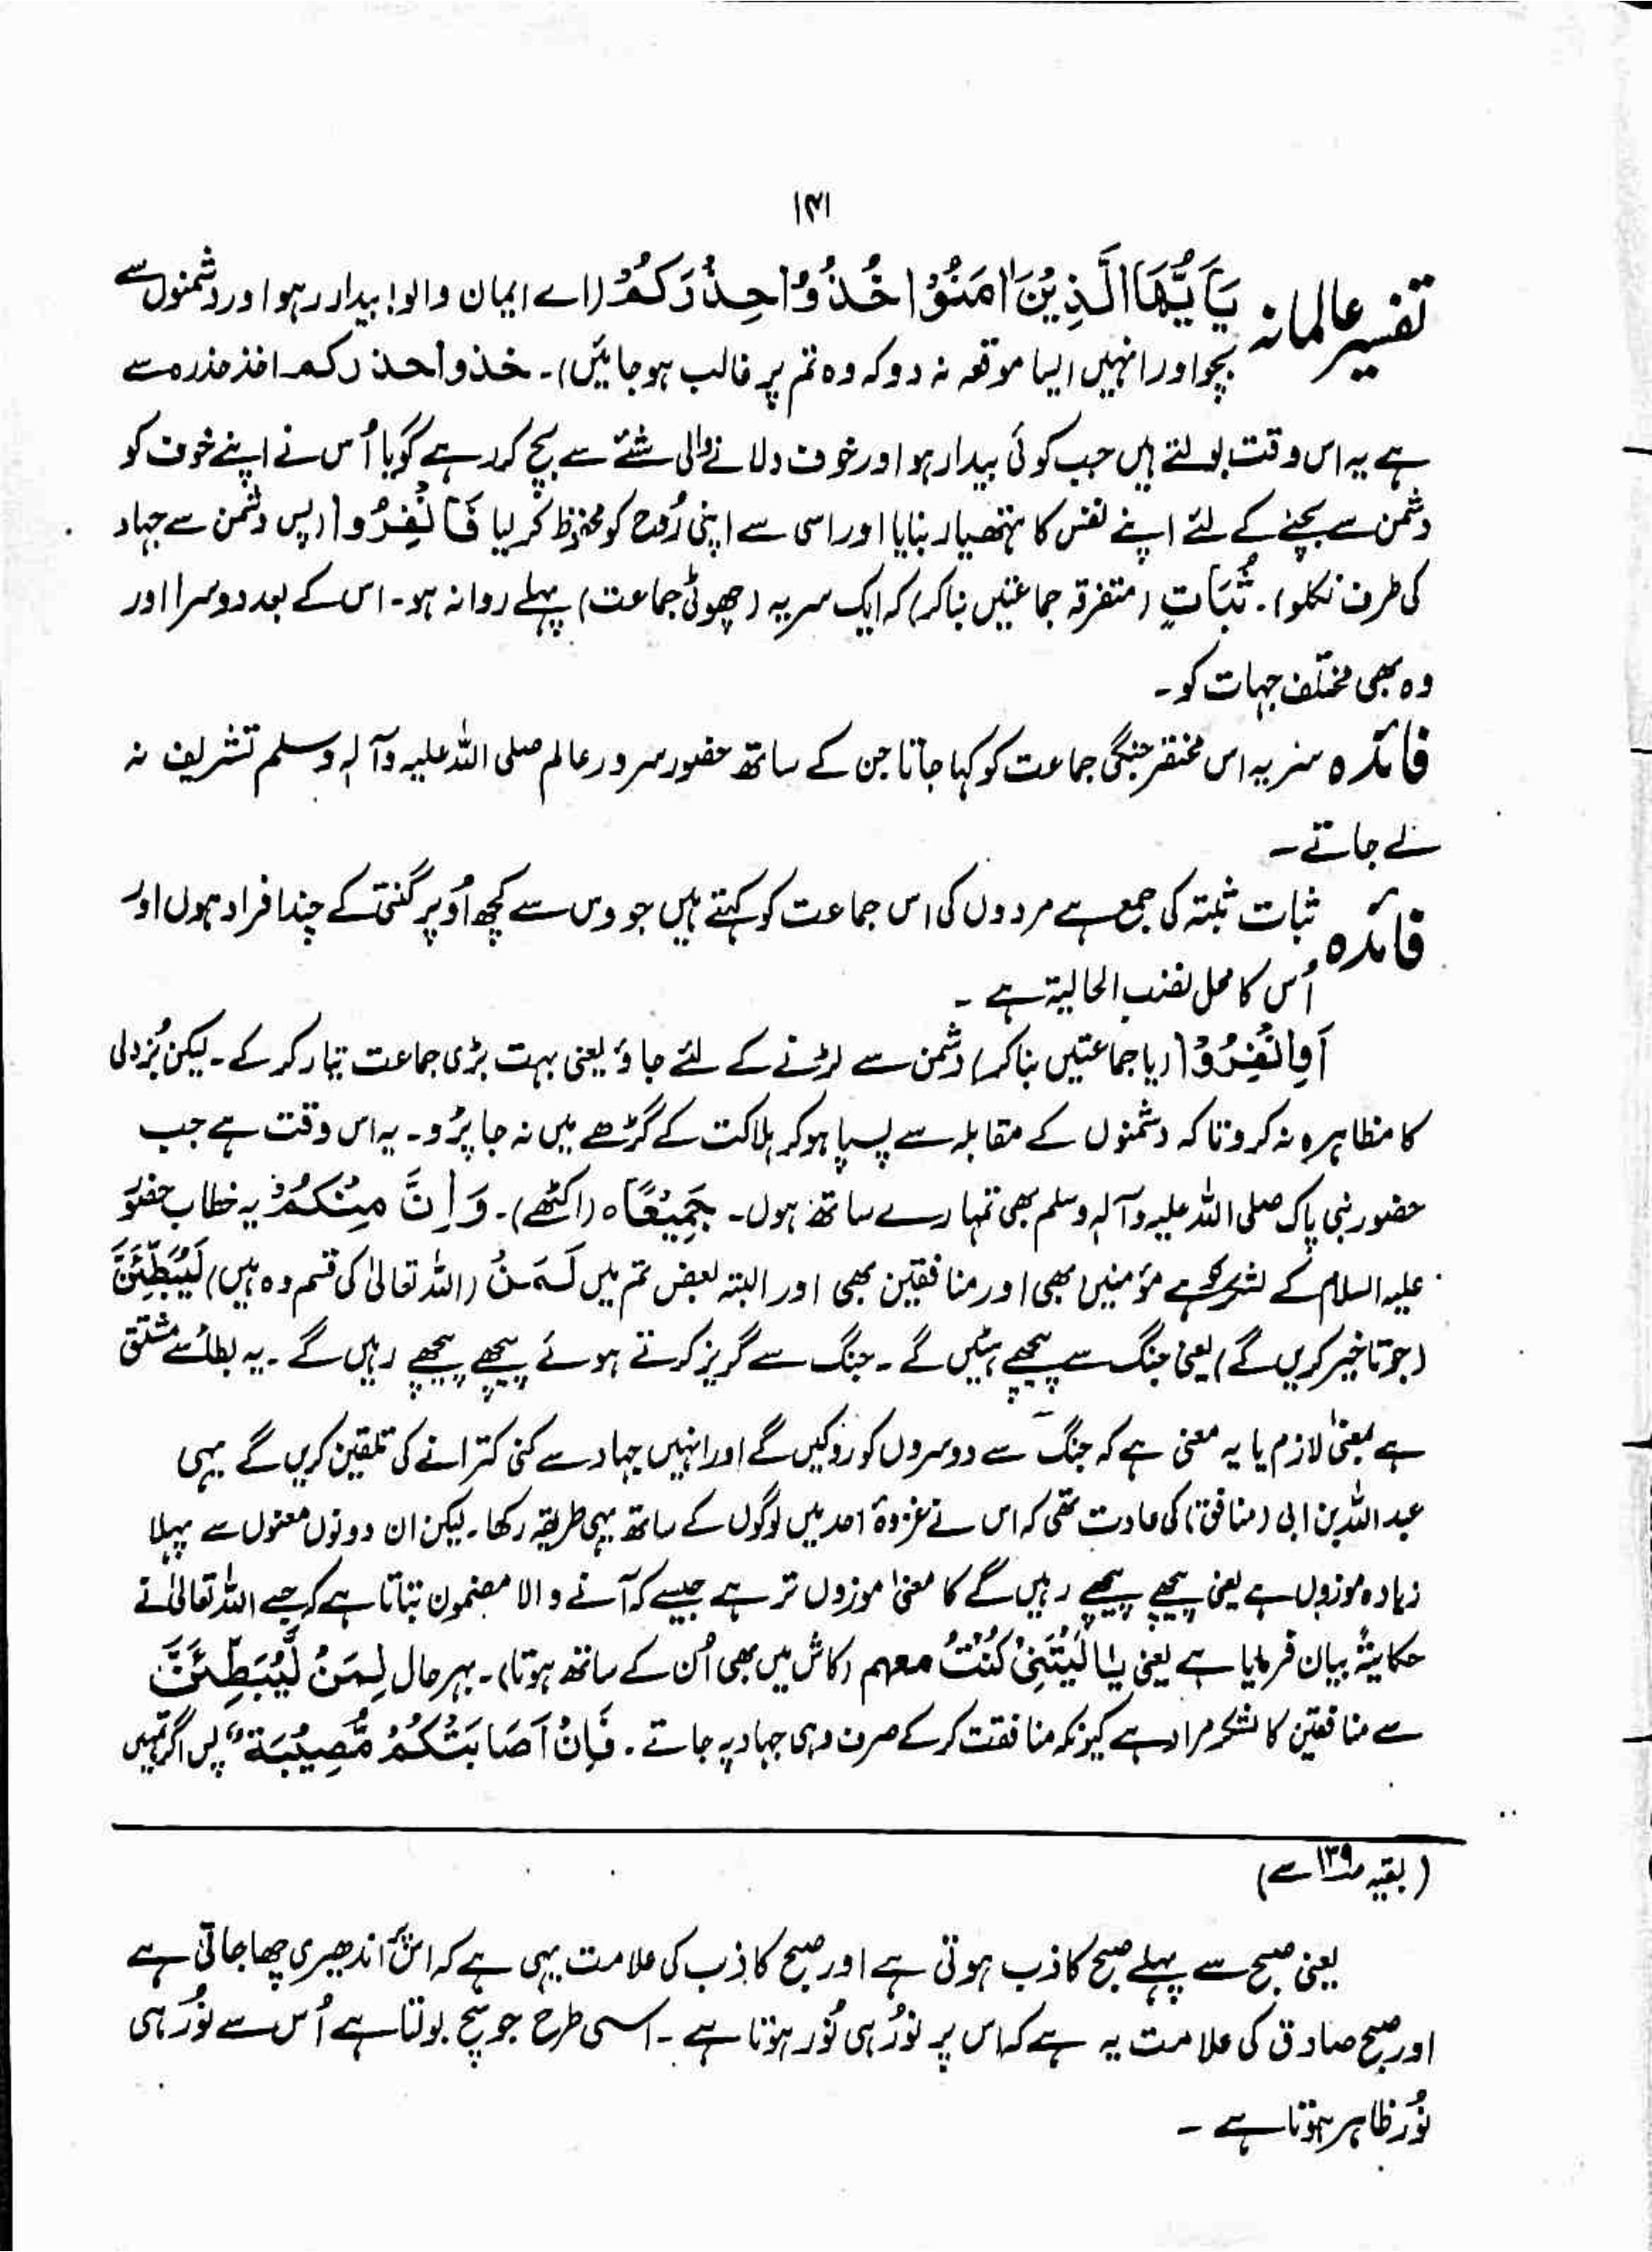 ۱۴۱
تفسیر عالمانہ یٰۤاَیُّهَا الَّذِیْنَ اٰمَنُوْا خُذُوْا حِذْرَکُمْ (اے ایمان والو! بیدار رہو اور دشمنوں سے
بچو اور انہیں ایسا موقعہ نہ دو کہ وہ تم پر غالب ہو جائیں)۔ خذوا حذرکم اخذ حذرہ سے
ہے یہ اس وقت بولتے ہیں جب کوئی بیدار ہو اور خوف دلانے والی شئے سے بچ کر رہے گویا اُس نے اپنے خوف کو
دشمن سے بچنے کے لئے اپنے نفس کا ہتھیار بنایا اور اسی سے اپنی رُوح کو محفوظ کر لیا فَانْفِرُوا (پس دشمن سے جہاد
کی طرف نکلو)۔ ثُبَاتٍ (متفرقہ جماعتیں بنا کر) کہ ایک سریہ (چھوٹی جماعت) پہلے روانہ ہو۔ اس کے بعد دوسرا اور
وہ بھی مختلف جہات کو۔
فائدہ سریہ اس مختصر جنگی جماعت کو کہا جاتا جن کے ساتھ حضور سرور عالم صلی اللہ علیہ وآلہ وسلم تشریف نہ
لے جاتے۔
فائدہ ثبات ثبتہ کی جمع ہے مردوں کی اس جماعت کو کہتے ہیں جو دس سے کچھ اُوپر گنتی کے چند افراد ہوں اور
اُس کا محل نصب الحالیۃ ہے۔
اَوِانْفِرُوْا (یا جماعتیں بنا کر) دشمن سے لڑنے کے لئے جاؤ یعنی بہت بڑی جماعت تیار کر کے۔ لیکن بُزدلی
کا مظاہرہ نہ کرو تا کہ دشمنوں کے مقابلہ سے پسپا ہو کر ہلاکت کے گڑھے میں نہ جا پڑو۔ یہ اس وقت ہے جب
حضور نبی پاک صلی اللہ علیہ وآلہ وسلم بھی تمہارے ساتھ ہوں۔ جَمِیْعًا ہ (اکٹھے)۔ وَ اِنَّ مِنْکُمْ یہ خطاب حضور
علیہ السلام کے لشکر کو ہے مؤمنین بھی اور منافقین بھی اور البتہ بعض تم میں لَمَنْ (اللہ تعالیٰ کی قسم وہ ہیں) لَیُبَطِّئَنَّ
(جو تاخیر کریں گے) یعنی جنگ سے پیچھے ہٹیں گے۔ جنگ سے گریز کرتے ہوئے پیچھے پیچھے رہیں گے۔ یہ بطأ سے مشتق
ہے بمعنیٰ لازم یا یہ معنی ہے کہ جنگ سے دوسروں کو روکیں گے اور انہیں جہاد سے کنی کترانے کی تلقین کریں گے یہی
عبد اللہ بن ابی (منافق) کی عادت تھی کہ اس نے غزوۂ احد میں لوگوں کے ساتھ یہی طریقہ رکھا۔ لیکن ان دونوں معنوں سے پہلا
زیادہ موزوں ہے یعنی پیچھے پیچھے رہیں گے کا معنیٰ موزوں تر ہے جیسے کہ آنے والا مضمون بتاتا ہے کہ جسے اللہ تعالیٰ نے
حکایۃً بیان فرمایا ہے یعنی یٰا لَیْتَنِیْ کُنْتُ معہم (کاش میں بھی اُن کے ساتھ ہوتا)۔ بہر حال لِمَنْ لَّیُبَطِّئَنَّ
سے منافقین کا لشکر مراد ہے کیونکہ منافقت کر کے صرف وہی جہاد پہ جاتے۔ فَاِنْ اَصَابَتْکُمْ مُّصِیْبَةٌ پس اگر تمہیں
(بقیہ ص۱۳۹ سے)
یعنی صبح سے پہلے صبح کاذب ہوتی ہے اور صبح کاذب کی علامت یہی ہے کہ اس پر اندھیری چھا جاتی ہے
اور صبح صادق کی علامت یہ ہے کہ اس پر نُور ہی نُور ہوتا ہے۔ اسی طرح جو سچ بولتا ہے اُس سے نُور ہی
نُور ظاہر ہوتا ہے۔